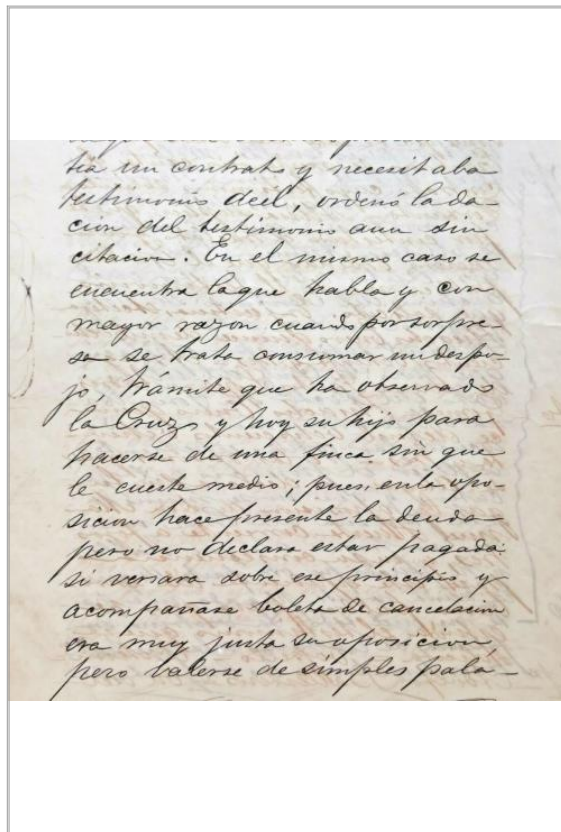 tia un contrat y necesitaba
testimonio de él, ordenó la da-
cion del testimonio aun sin
citacion. En el mismo caso se
encuentra la que habla y con
mayor razon cuando por sorpre-
sa se trata consumar un despo-
jo, trámite que ha observado
la Cruz y hoy su hijo para
hacerse de una finca sin que
le cueste medio; pues, en la opo-
sicion hace presente la deuda
pero no declara estar pagada.
si versara sobre ese principio y
acompañase boleta de cancelacion
era muy justa su oposicion,
pero valerse de simples pala-